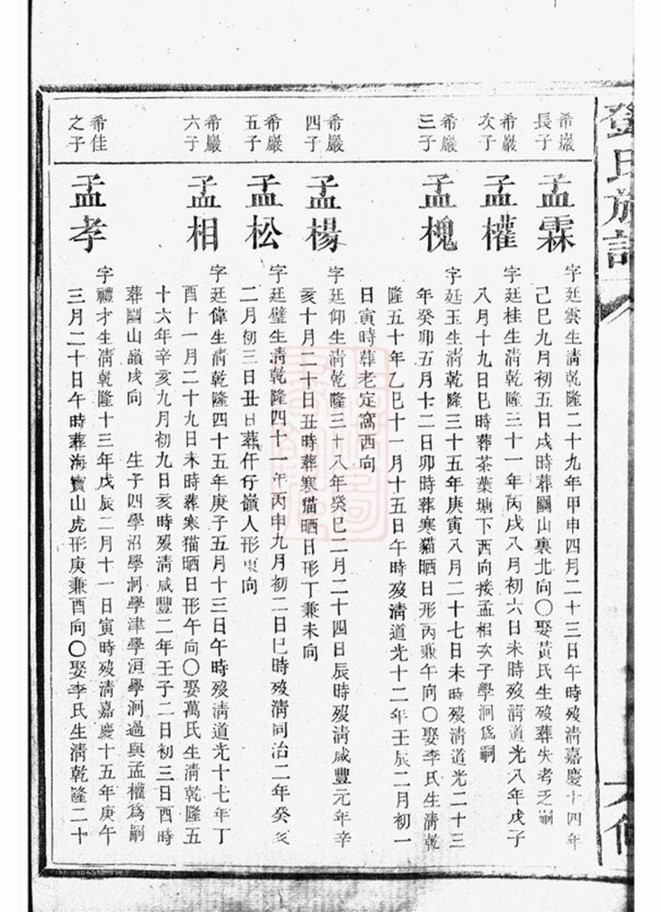 鄧氏族譜
六修
希巖長子
孟霖
字廷雲生淸乾隆二十九年甲申四月二十三日午時歿淸嘉慶十四年
己巳九月初五日戌時葬關山裏北向〇娶黃氏生歿葬失考乏嗣
希巖次子
孟權
字廷桂生淸乾隆三十一年丙戌八月初六日未時歿淸道光八年戊子
八月十九日巳時葬茶葉塘下西向接孟相次子學泂爲嗣
希巖三子
孟槐
字廷玉生淸乾隆三十五年庚寅八月二十七日未時歿淸道光二十三
年癸卯五月十二日卯時葬寒貓晒日形丙兼午向〇娶李氏生淸乾
隆五十年乙巳十一月十五日午時歿淸道光十二年壬辰二月初一
日寅時葬老定窩西向
希巖四子
孟楊
字廷仰生淸乾隆三十八年癸巳二月二十四日辰時歿淸咸豐元年辛
亥十月二十日丑時葬寒猫晒日形丁兼未向
希巖五子
孟松
字廷璧生淸乾隆四十一年丙申九月初二日巳時歿淸同治二年癸亥
二月初三日丑日葬仟仔嶺人形東向
希巖六子
孟相
字廷偉生淸乾隆四十五年庚子五月十三日午時歿淸道光十七年丁
酉十一月二十九日未時葬寒猫晒日形午向〇娶萬氏生淸乾隆五
十六年辛亥九月初九日亥時歿淸咸豐二年壬子二日初三日酉時
葬關山嶺戌向 生子四學沼學泂學津學洹學泂過與孟權爲嗣
希佳之子
孟孝
字禮才生淸乾隆十三年戊辰二月十一日寅時歿淸嘉慶十五年庚午
三月二十日午時葬海寶山虎形庚兼酉向〇娶李氏生淸乾隆二十